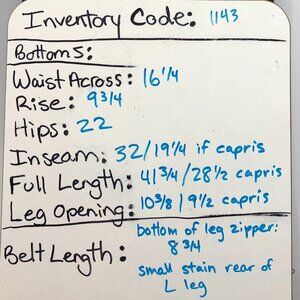 Inventory Code: 1143
Bottoms:
Waist Across: 16 1/4
Rise: 9 3/4
Hips: 22
Inseam: 32/19 1/4 if capris
Full Length: 41 3/4/28 1/2 capris
Leg Opening: 10 3/8/9 1/2 capris
Belt Length: bottom of leg zipper:
8 3/4
small stain rear of
L leg